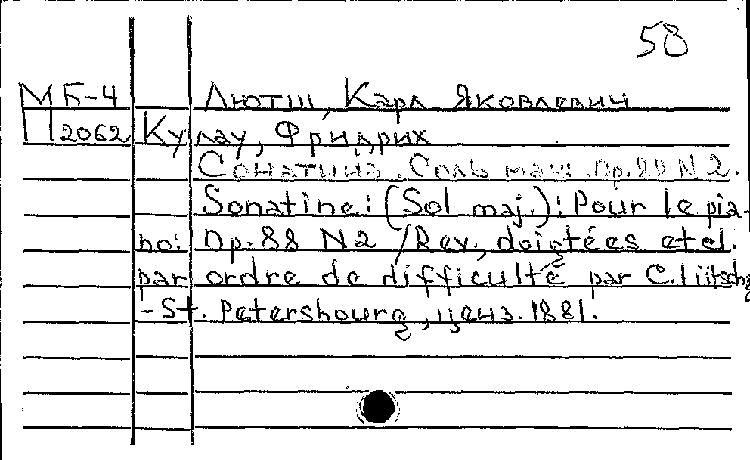 58
МБ-4 Лютш, Карл Яковлевич
П2062 Кулау, Фридрих
Соната. Соль маж. Op.88 N2.
Sonatine: (Sol maj.): Pour le pia-
no: Op.88 N2 /Rev, doigtées et cl.
par ordre de difficulté par C. Lütsch
-St. Petersbourg, ценз. 1881.